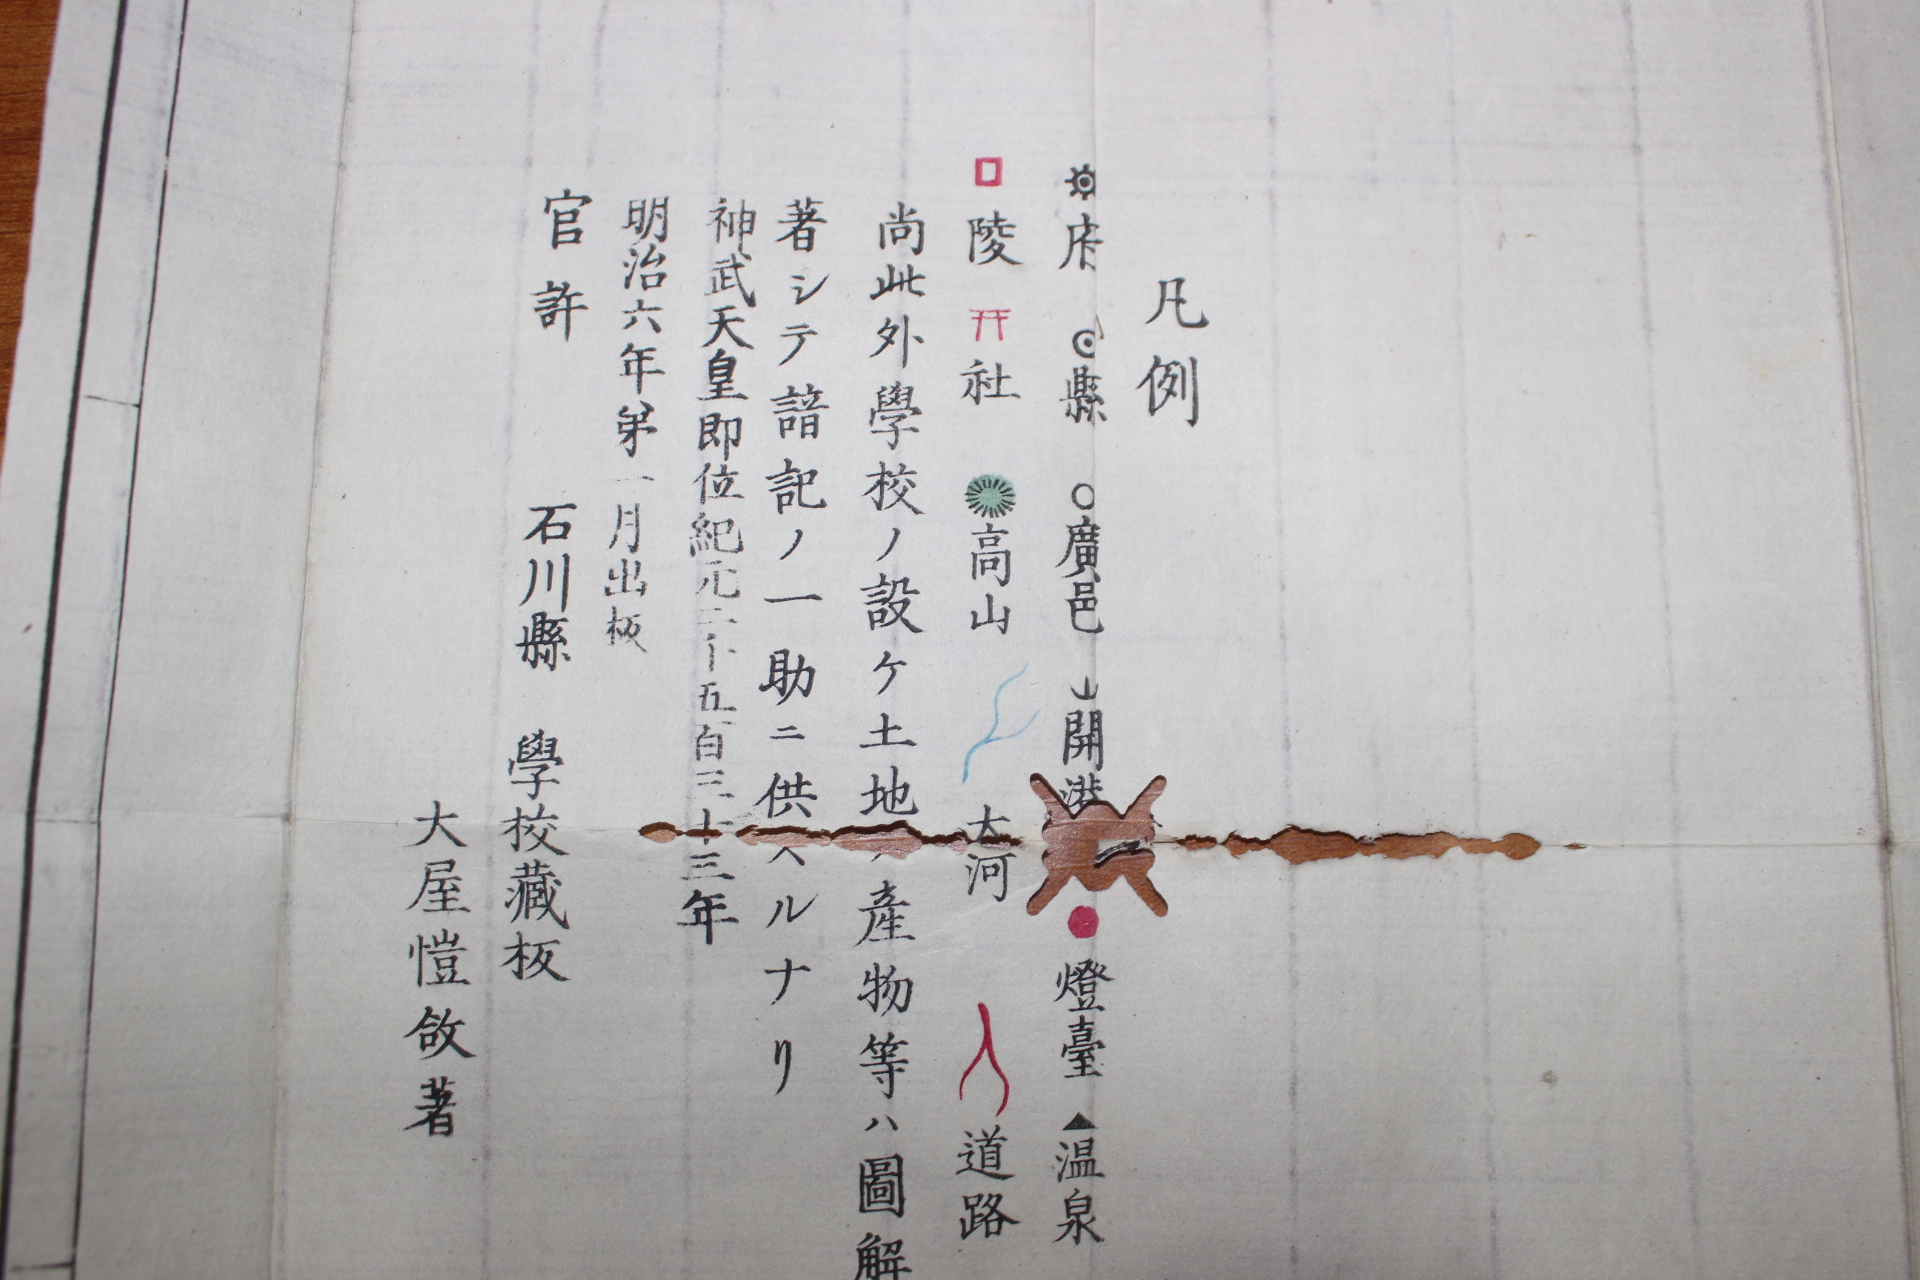 凡例
府 縣 廣邑 開港 燈臺 温泉
陵 社 高山 大河 道路
尚此外學校ノ設ケ土地ノ産物等ハ圖解
著シテ諳記ノ一助ニ供スルナリ
神武天皇即位紀元二千五百三十三年
明治六年第一月出板
官許 石川縣 學校藏板
大屋愷㪉著